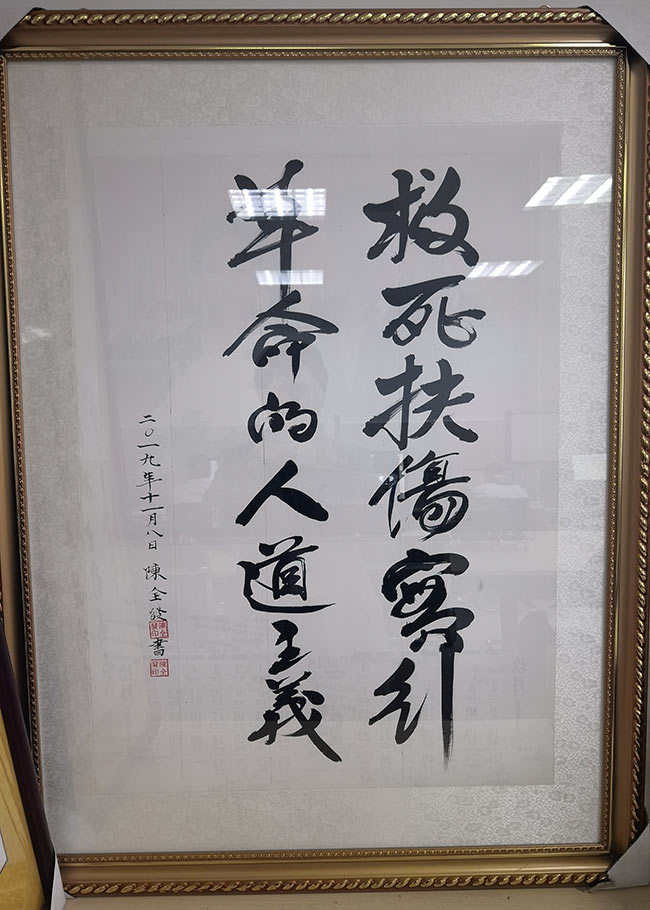 救死扶傷實行
革命的人道主義
二〇一九年十一月八日 陳全發書